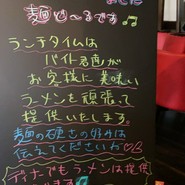 麺や〜るです♪♫
ランチタイムは
バイト君達が
お客様に美味い
ラーメンを頑張って
提供いたします。
麺の硬さの好みは
伝えてくださいね♡
ディナーでもラーメンは提供